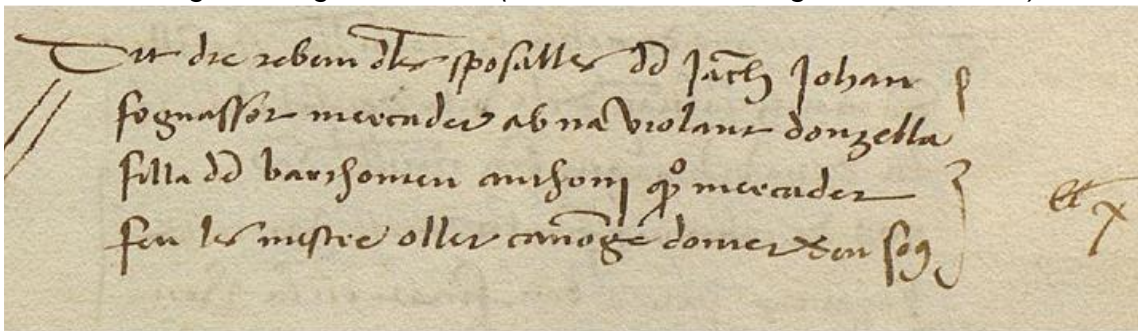 Dit die rebem dles sposalles dd Jach Johan
sognassor mercader ab na violant donzella
filla dd barthomeu anthonj qº mercader
feu les mestre oller canonge domer